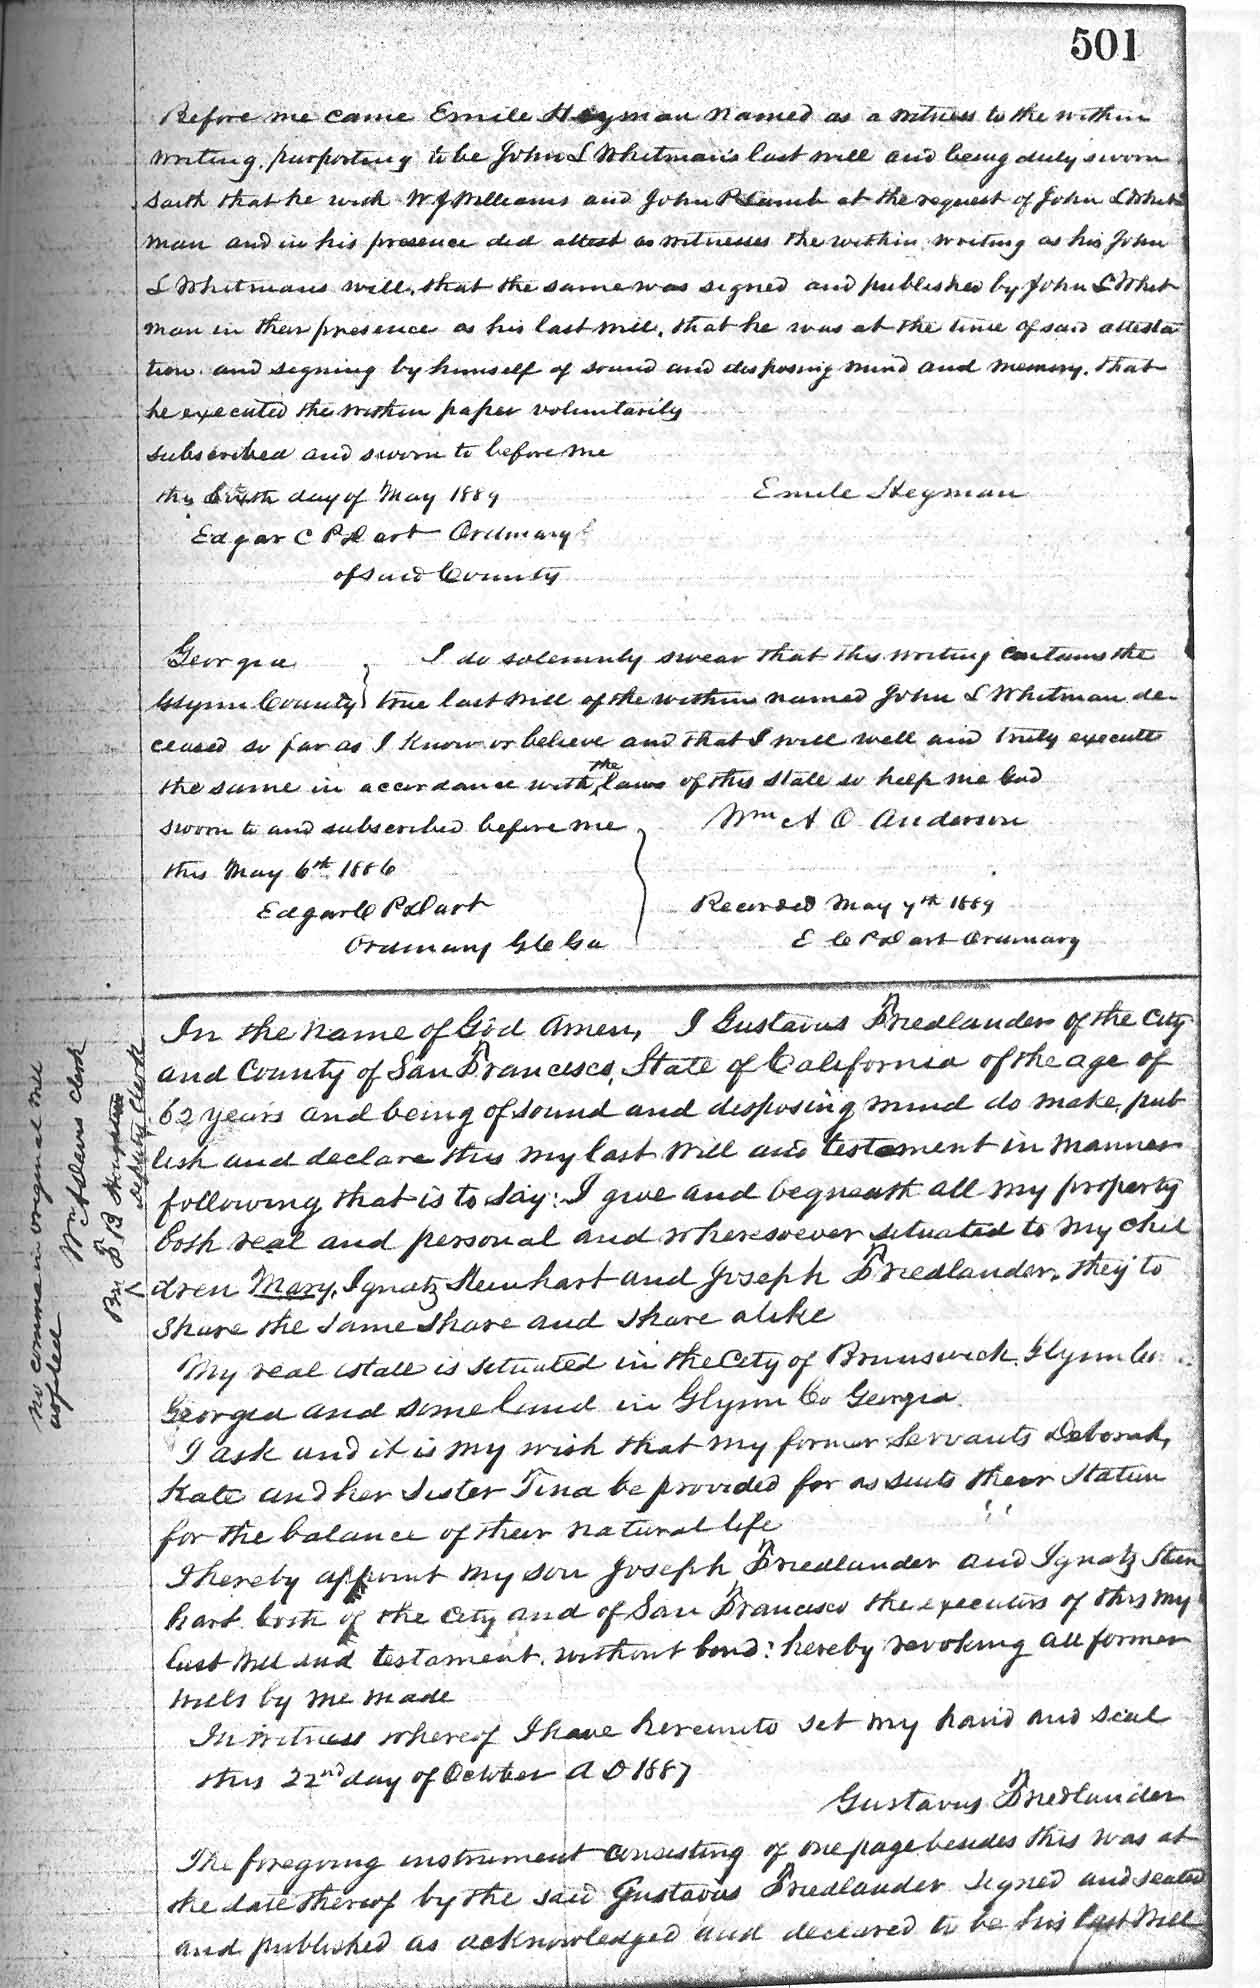 501
Before me came Emile Heyman named as a witness to the within
writing, purporting to be John L Whitman's last will and being duly sworn
saith that he with W J Williams and John R Lamb at the request of John L Whit
man and in his presence did attest as witnesses the within writing as his John
L Whitmans will, that the same was signed and published by John L Whit
man in their presence as his last will, that he was at the time of said attesta
tion and signing by himself of sound and disposing mind and memory, that
he executed the within paper voluntarily
subscribed and sworn to before me
this Sixth day of May 1889
Emile Heyman
Edgar C P Dart Ordinary
of said County
Georgia } I do solemnly swear that this writing contains the
Glynn County } true last will of the within named John L Whitman de-
ceased so far as I know or believe and that I will well and truly execute
the same in accordance with the laws of this state so help me God
sworn to and subscribed before me } Wm A O Anderson
this May 6th 1886
Edgar C P Dart
Ordinary G C Ga
Recorded May 7th 1889
E C P Dart Ordinary
In the name of God Amen, I Gustavus Friedlander of the City
and County of San Francisco, State of California of the age of
62 years and being of sound and disposing mind do make, pub
lish and declare this my last will and testament in manner
following that is to say: I give and bequeath all my property
both real and personal and wheresoever situated to my chil
dren Mary, Ignatz Steinhart and Joseph Friedlander, they to
share the same share and share alike
My real estate is situated in the City of Brunswick, Glynn Co
Georgia and some land in Glynn Co Georgia.
I ask and it is my wish that my former servants Deborah,
Kate and her sister Tina be provided for as suits their station
for the balance of their natural life
I hereby appoint my son Joseph Friedlander and Ignatz Stein
hart both of the City and of San Francisco the executors of this my
last will and testament, without bond: hereby revoking all former
wills by me made
In witness whereof I have hereunto set my hand and seal
this 22nd day of October A D 1887
Gustavus Friedlander
The foregoing instrument consisting of one page besides this was at
the date thereof by the said Gustavus Friedlander signed and sealed
and published as acknowledged and declared to be his last will
no comma in original will
Wm A Davis clerk
Deputy Clerk